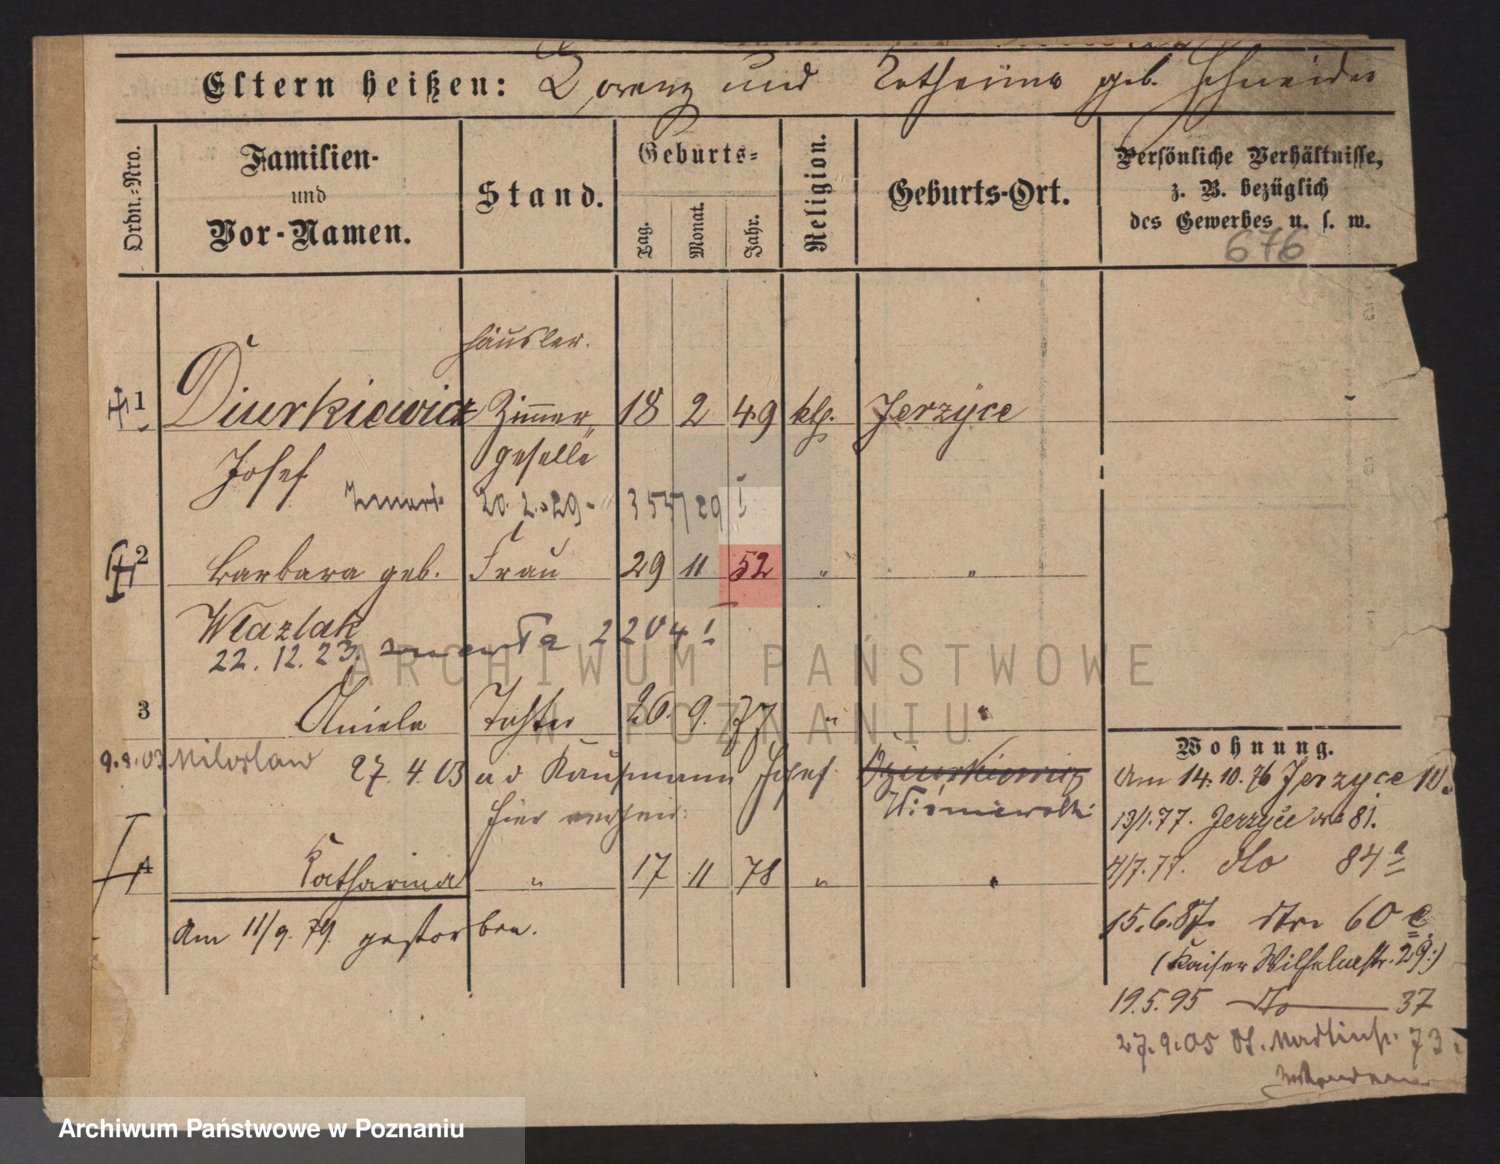 Eltern heißen: Lorenz und Katharina geb. Schneider
Ordn.-Nro.
Familien-
und
Vor-Namen.
Stand.
Geburts-
Tag.
Monat.
Jahr.
Religion.
Geburts-Ort.
Persönliche Verhältnisse,
z. B. bezüglich
des Gewerbes u. s. w.
676
Häusler.
1 Diurkiewicz Zimmer 18 2 49 kth. Jerzyce
Josef geselle
20. 2. 29
2 Barbara geb. Frau 29 11 52 " "
Wlazlak
22. 12. 23. zmarła 2204
3 Aniela Tochter 26. 9. 77 " "
9.9.03 Miloslaw 27. 4. 03 a d Kaufmann Josef Dziurkiewicz
Wiśniewski
hier
4 Katharina " 17 11 78 " "
Am 11/9. 79. gestorben.
Wohnung.
Am 14.10.76 Jerzyce
13/1.77. Jerzyce 81.
4/7.77. dto 84 a
15.6.87. dto 60 c.
(Kaiser Wilhelmstr. 29.)
19.5.95 dto 37
27.9.05 St. Martinstr. 73
ARCHIWUM PAŃSTWOWE
W POZNANIU
Archiwum Państwowe w Poznaniu